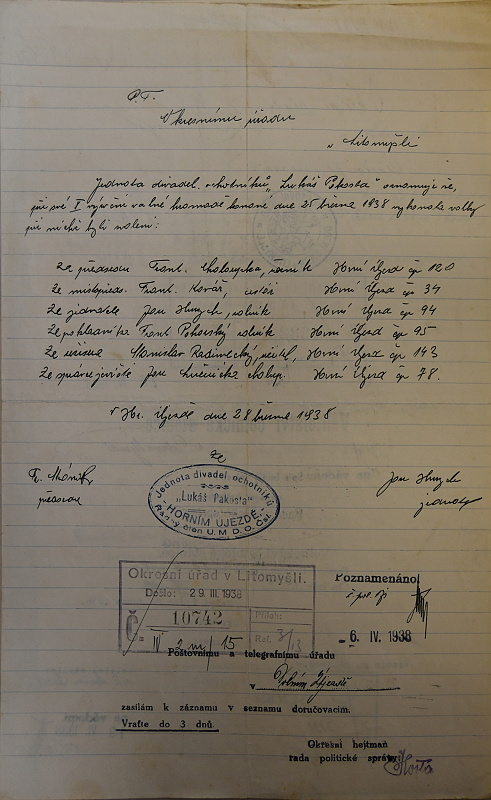 P.T.
Okresnímu úřadu
v Litomyšli
Jednota divadel. ochotníků „Lukáš Pakosta" oznamuje, že
při své I výroční valné hromadě konané dne 25 března 1938 vykonala volby
při nichž byli voleni:
Za předsedu Frant. Horní Újezd čp 120
Za místopřed. Frant. Kovář, Horní Újezd čp 34
Za jednatele Jan rolník Horní Újezd čp 94
Za pokladníka Frant rolník Horní Újezd čp 95
Za Stanislav učitel, Horní Újezd čp 143
Za správce jeviště Jan chalup. Horní Újezd čp 78.
V Hor. Újezdě dne 28 března 1938
Za
Fr. Jan
předseda jednatel
Jednota divadel ochotníků
„Lukáš Pakosta"
HORNÍM ÚJEZDĚ
Řádný člen Ú. M. D. O. Čsl.
Okresní úřad v Litomyšli.
Došlo: 29. III. 1938
Č. 10742
Příloh:
IV 2 m/15
Ref. 3/13
Poznamenáno
- 6. IV. 1938
Poštovnímu a telegrafnímu úřadu
v Dolním Újezdě
zasílám k záznamu v seznamu doručovacím.
Vraťte do 3 dnů.
Okresní hejtman
rada politické správy: